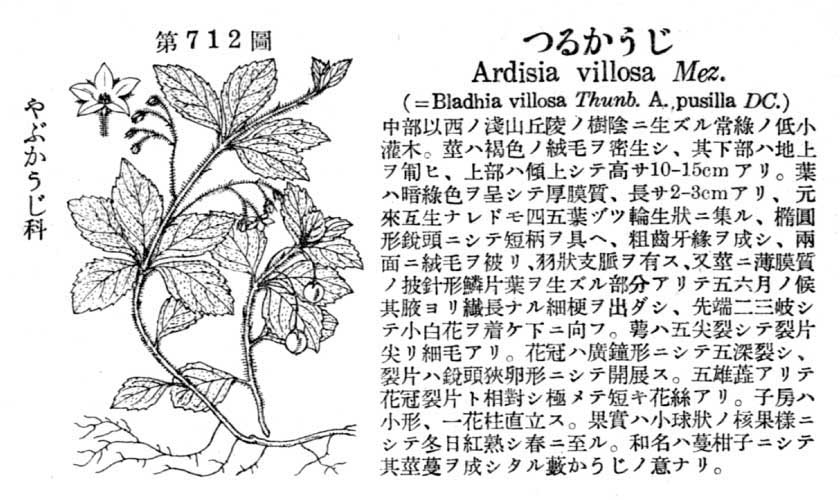 第712圖
やぶかうじ科
つるかうじ
Ardisia villosa Mez.
(=Bladhia villosa Thunb. A. pusilla DC.)
中部以西ノ淺山丘陵ノ樹陰ニ生ズル常綠ノ低小
灌木。莖ハ褐色ノ絨毛ヲ密生シ、其下部ハ地上
ヲ匍ヒ、上部ハ傾上シテ高サ10-15cmアリ。葉
ハ暗綠色ヲ呈シテ厚膜質、長サ2-3cmアリ、元
來互生ナレドモ四五葉ヅツ輪生狀ニ集ル、橢圓
形銳頭ニシテ短柄ヲ具ヘ、粗齒牙緣ヲ成シ、兩
面ニ絨毛ヲ被リ、羽狀支脈ヲ有ス、又莖ニ薄膜質
ノ披針形鱗片葉ヲ生ズル部分アリテ五六月ノ候
其腋ヨリ纖長ナル細梗ヲ出ダシ、先端二三岐シ
テ小白花ヲ着ケ下ニ向フ。萼ハ五尖裂シテ裂片
尖リ細毛アリ。花冠ハ廣鐘形ニシテ五深裂シ、
裂片ハ銳頭狹卵形ニシテ開展ス。五雄蕋アリテ
花冠裂片ト相對シ極メテ短キ花絲アリ。子房ハ
小形、一花柱直立ス。果實ハ小球狀ノ核果樣ニ
シテ冬日紅熟シ春ニ至ル。和名ハ蔓柑子ニシテ
其莖蔓ヲ成シタル藪かうじノ意ナリ。